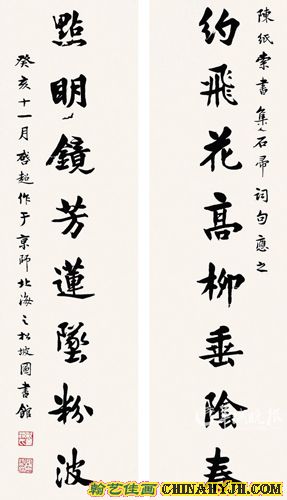 陳紙索書集石帚詞句應之
約飛花高柳垂陰春
點明鏡芳蓮墜粉波
癸亥十一月啓超作于京師北海之松坡圖書館
翰艺佳画 CHINAHYJH.COM